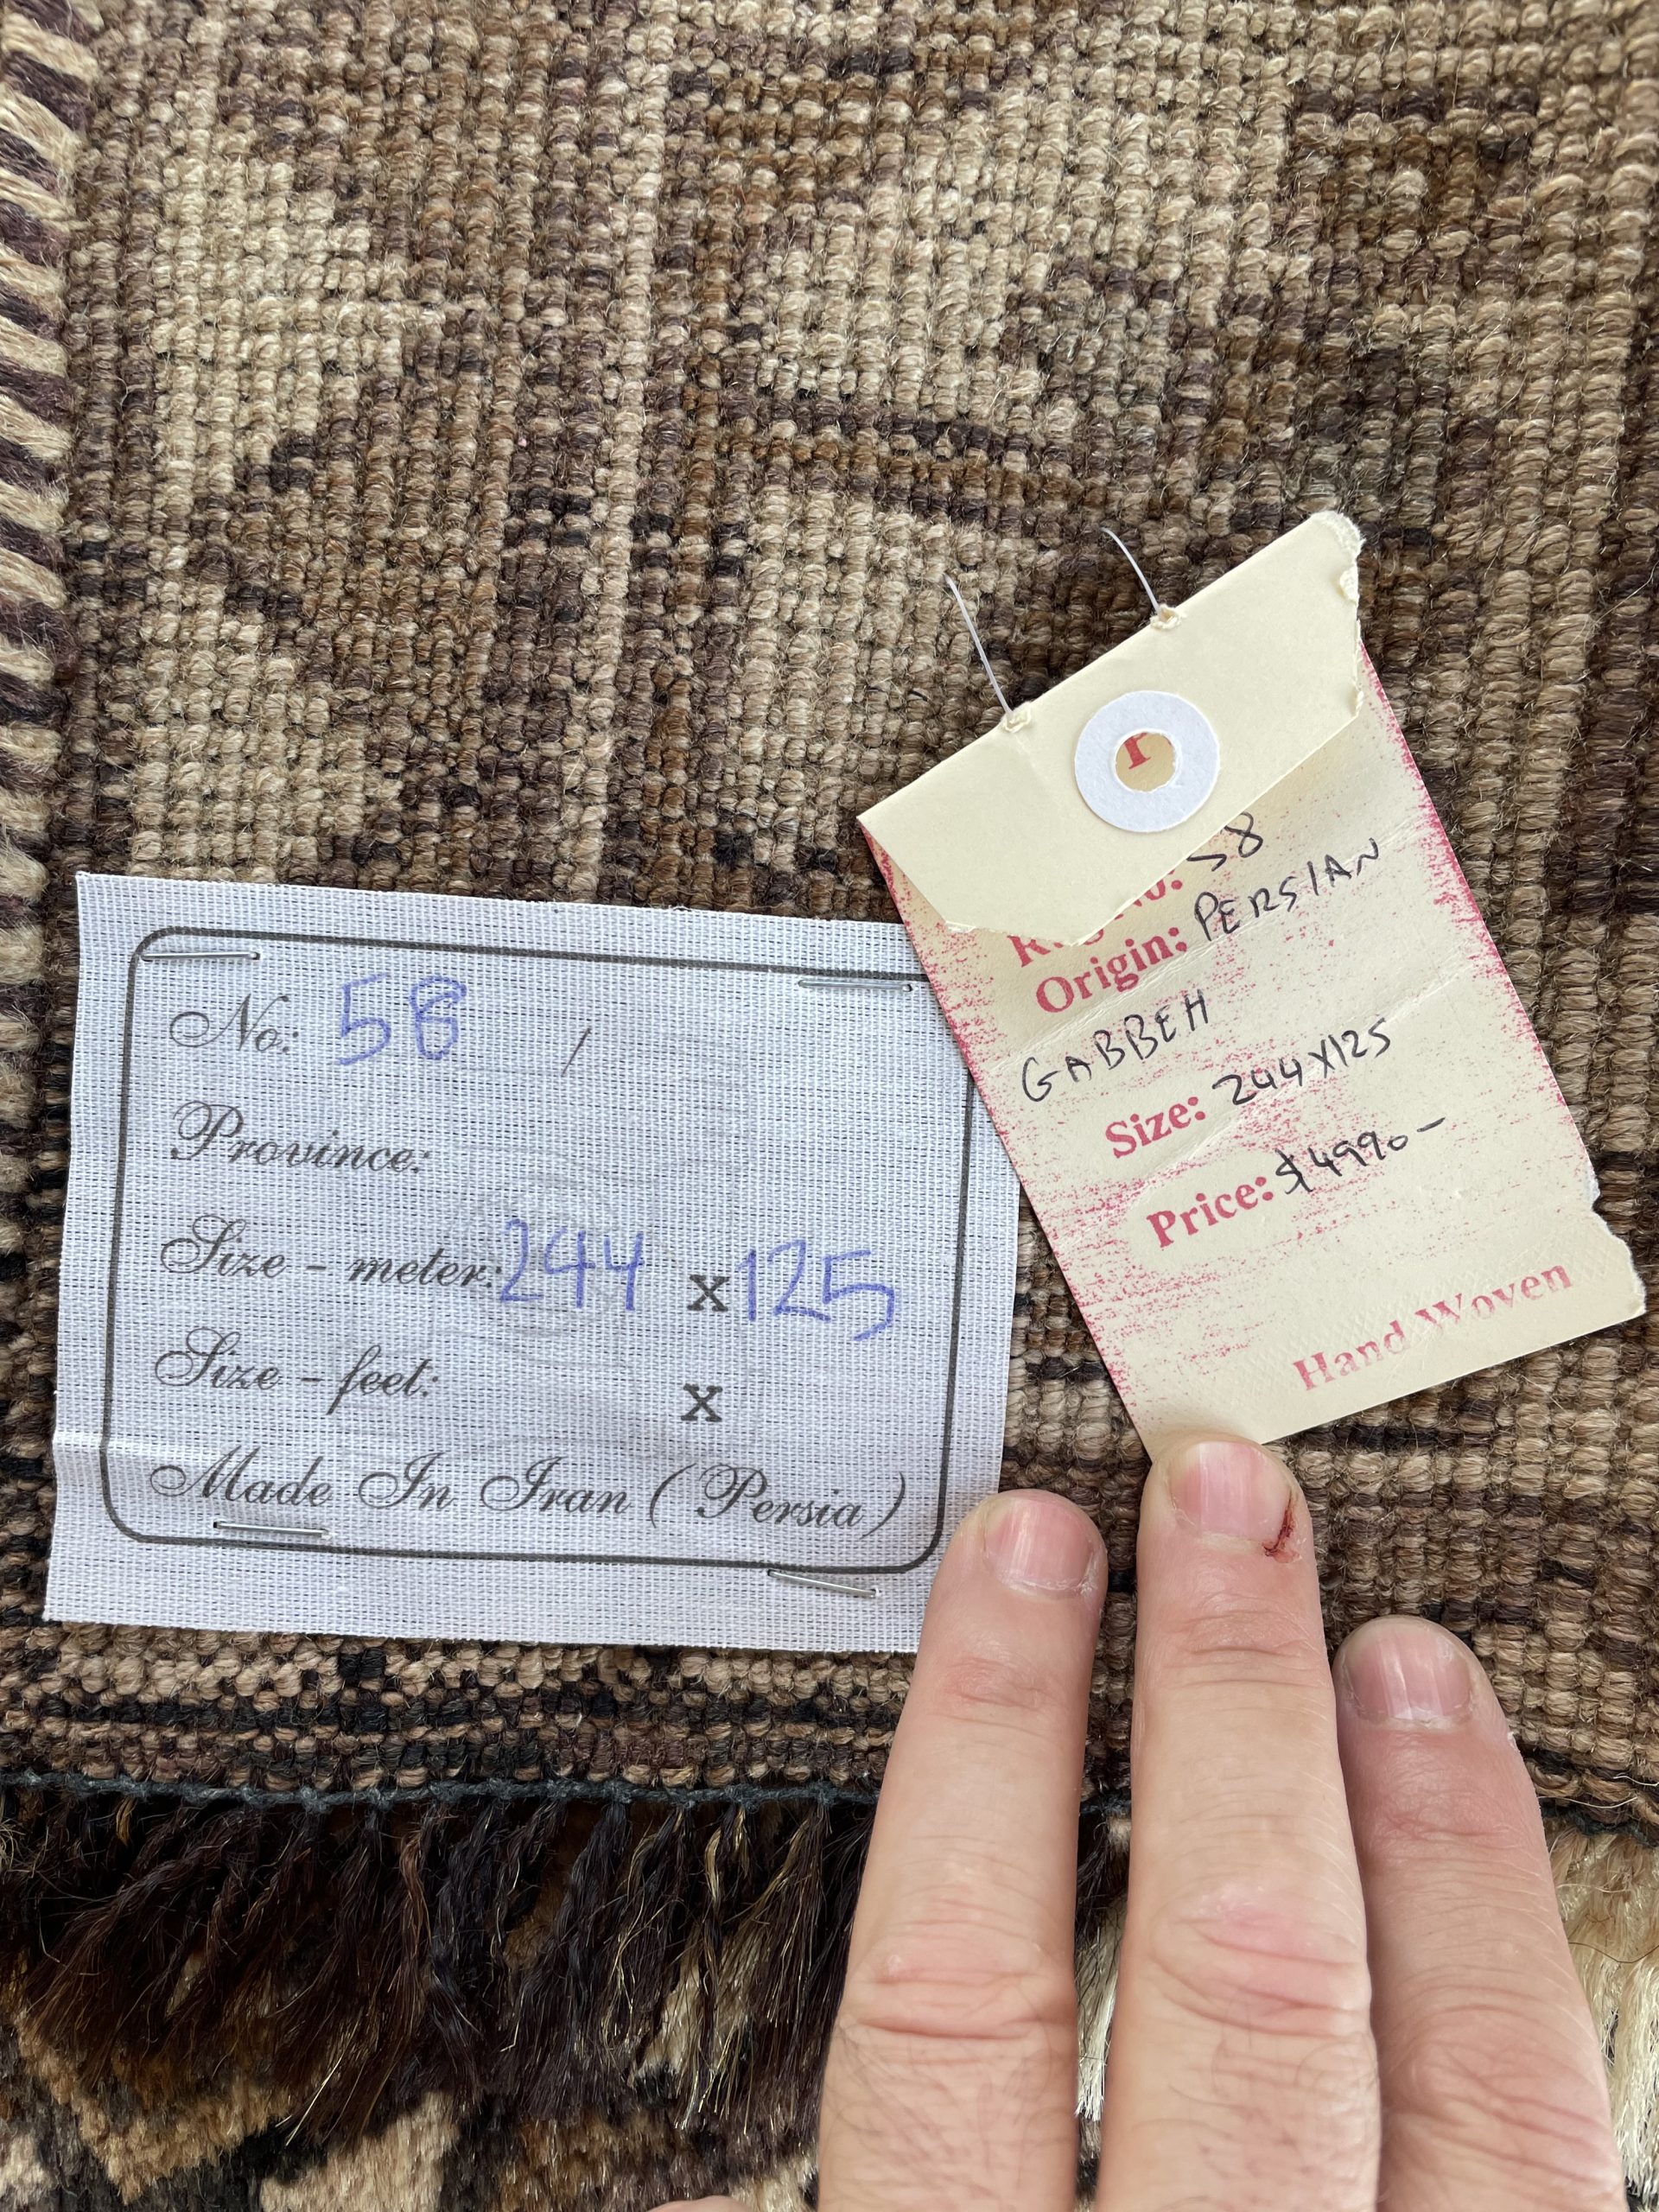 No: 58 /
Province:
Size - meter: 244 x 125
Size - feet: x
Made In Iran (Persia)
No: 58
Origin: PERSIAN
GABBEH
Size: 244X125
Price: $4990-
Hand Woven